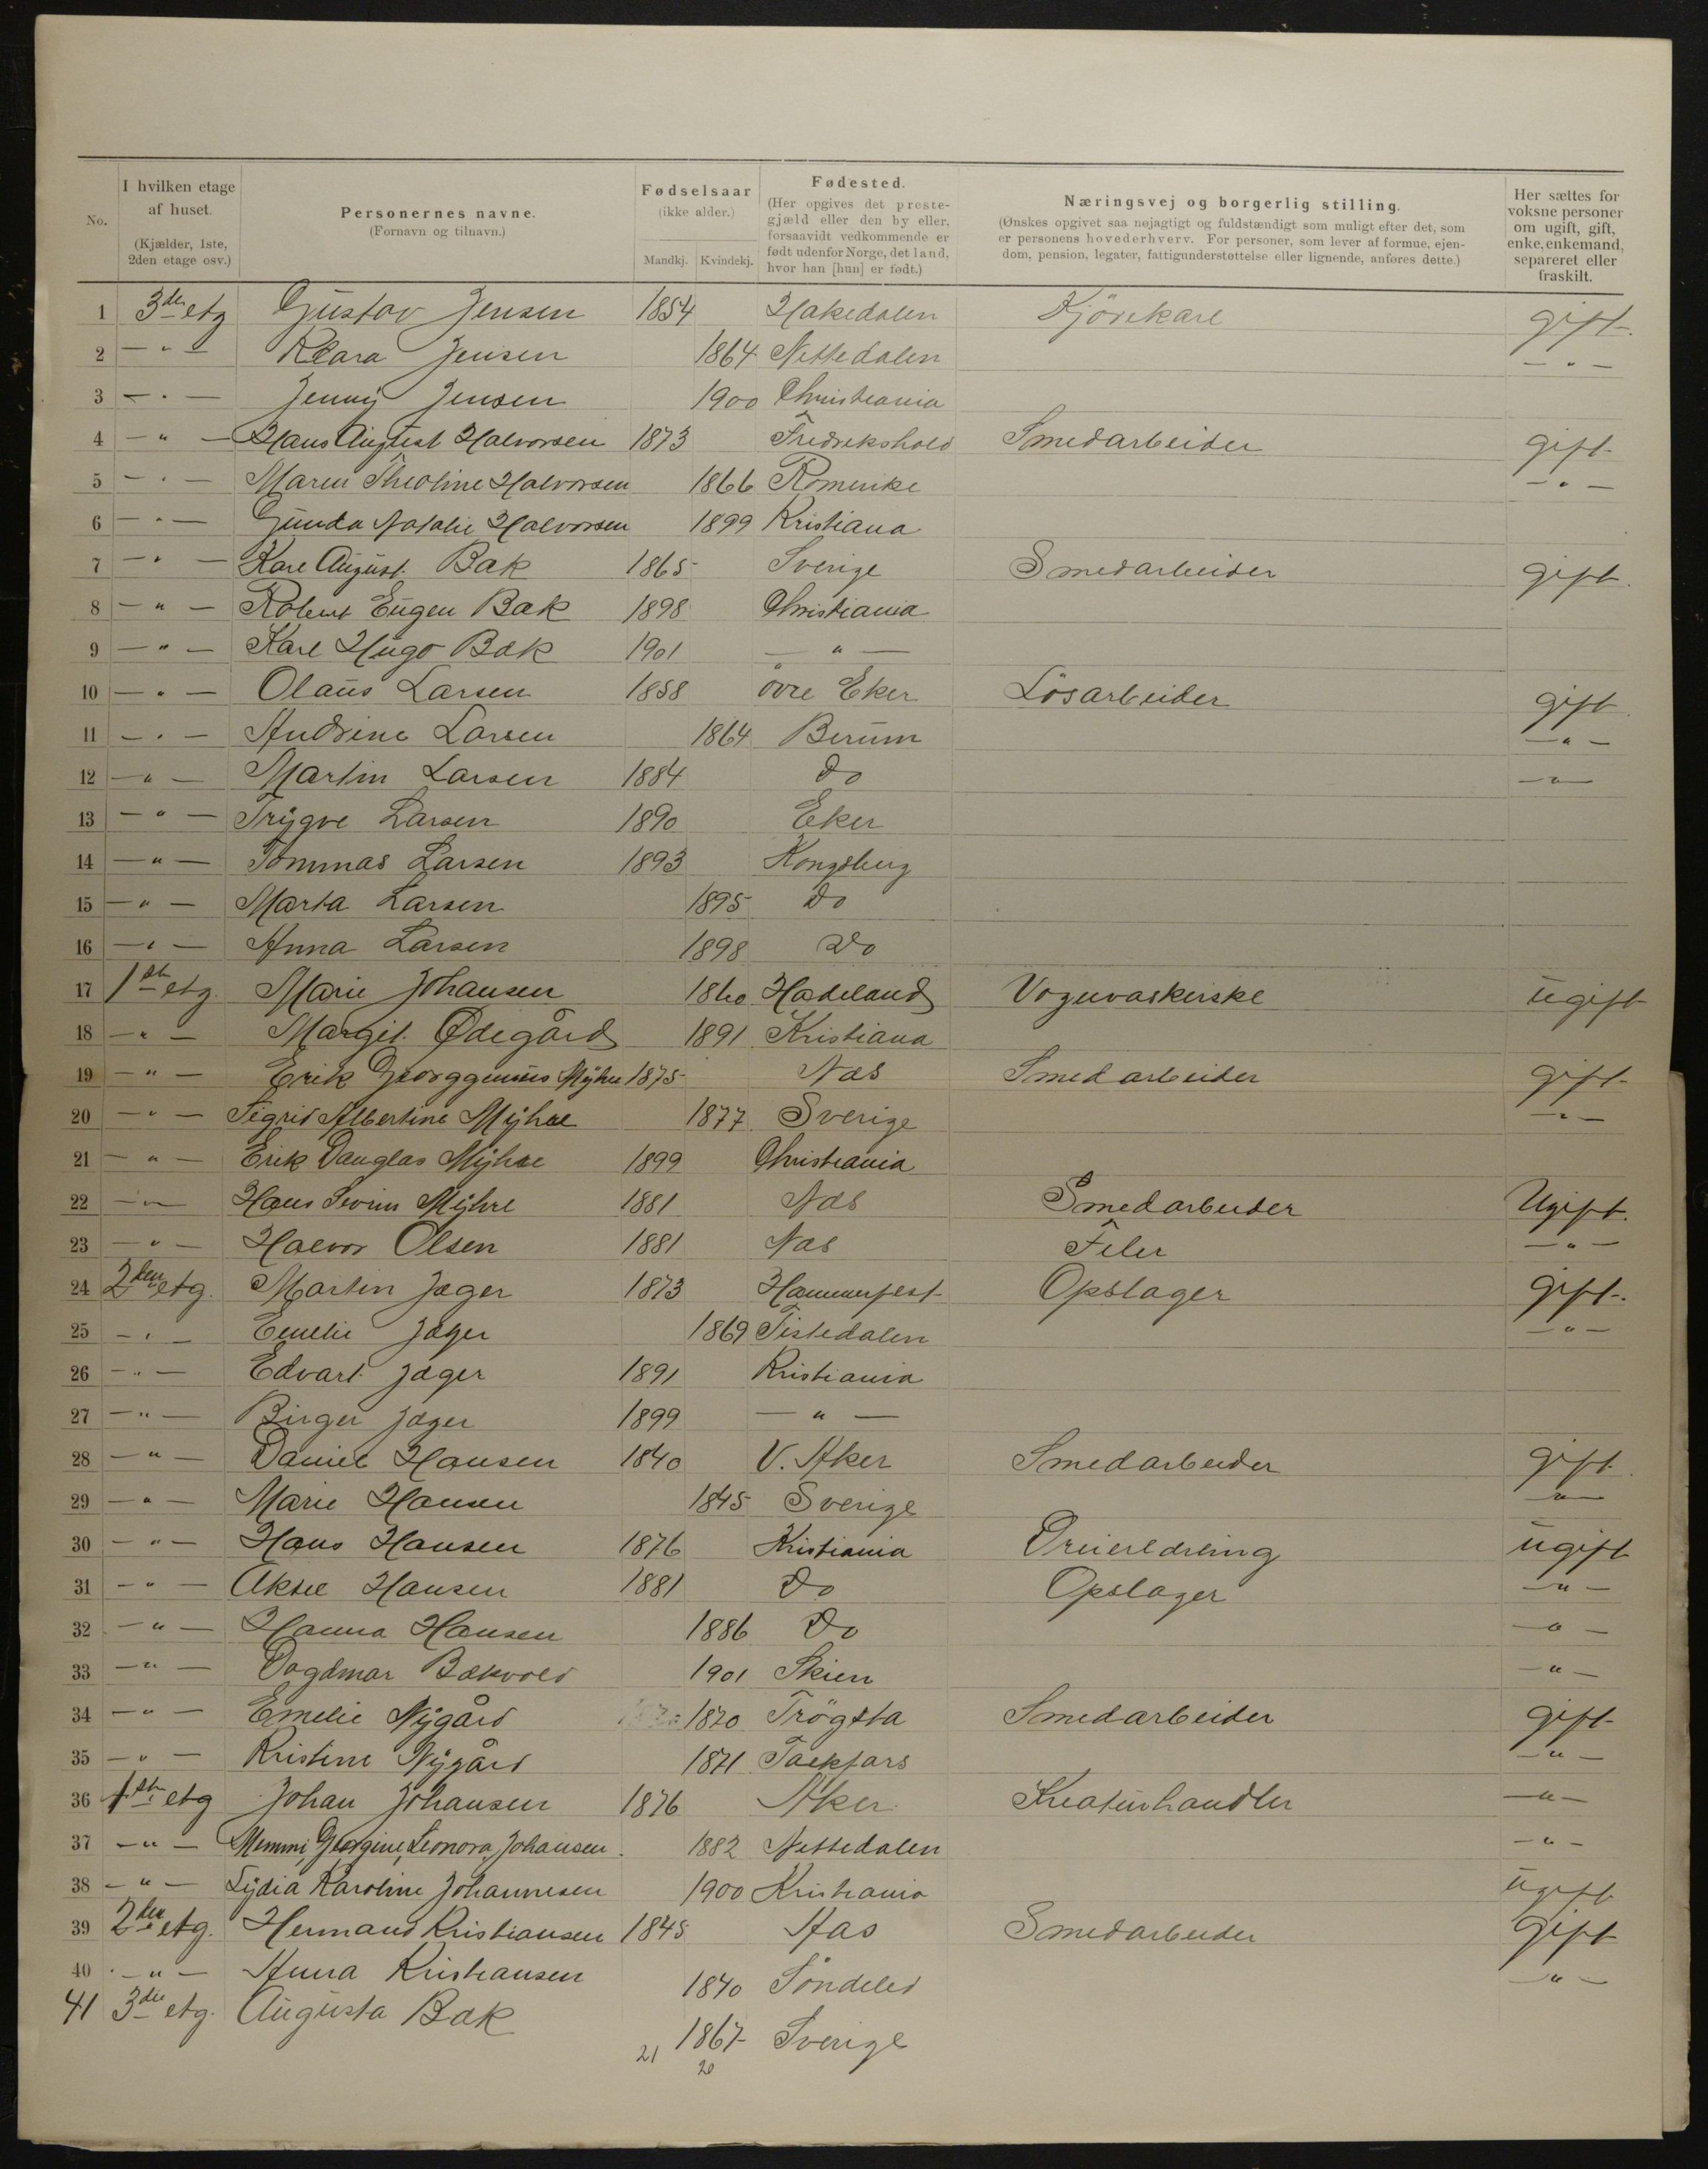 No. | I hvilken etage af huset. (Kjælder, 1ste, 2den etage osv.) | Personernes navne. (Fornavn og tilnavn.) | Fødselsaar (ikke alder.) Mandkj. Kvindekj. | Fødested. (Her opgives det prestegjæld eller den by eller, forsaavidt vedkommende er født udenfor Norge, det land, hvor han [hun] er født.) | Næringsvej og borgerlig stilling. (Ønskes opgivet saa nøjagtigt og fuldstændigt som muligt efter det, som er personens hovederhverv. For personer, som lever af formue, ejendom, pension, legater, fattigunderstøttelse eller lignende, anføres dette.) | Her sættes for voksne personer om ugift, gift, enke, enkemand, separeret eller fraskilt.
1 3die etg Gustav Jensen 1854 Hakedalen Kjörekarl gift
2 — " — Klara Jensen 1864 Nittedalen — " —
3 — " — Jenny Jensen 1900 Christiania
4 — " — Hans August Halvorsen 1873 Fredrekshald Smedarbeider gift
5 — " — Maren Theoline Halvorsen 1866 Romerike — " —
6 — " — Gunda Natalie Halvorsen 1899 Kristiana
7 — " — Karl August Bæk 1865 Sverige Smedarbeider gift
8 — " — Robert Eugen Bæk 1898 Christiania
9 — " — Karl Hugo Bæk 1901 — " —
10 — " — Olaus Larsen 1858 övre Eker Lösarbeider gift
11 — " — Andrine Larsen 1864 Berum — " —
12 — " — Martin Larsen 1884 Do — " —
13 — " — Trygve Larsen 1890 Eker
14 — " — Tommas Larsen 1893 Kongsberg
15 — " — Marta Larsen 1895 Do
16 — " — Anna Larsen 1898 Do
17 1ste etg. Marie Johansen 1860 Hadeland Vognvaskerske ugift
18 — " — Margit Ødegård 1891 Kristiana
19 — " — Erik Georggenius Myhre 1875 Næs Smedarbeider gift
20 — " — Sigrid Albertine Myhre 1877 Sverige — " —
21 — " — Erik Dauglas Myhre 1899 Christiania
22 — " — Hans Sevrin Myhre 1881 Næs Smedarbeider Ugift
23 — " — Halvor Olsen 1881 Næs Filer — " —
24 2den etg. Martin Jæger 1873 Hammerfest Opslager gift
25 — " — Emelie Jæger 1869 Tistedalen — " —
26 — " — Edvart Jæger 1891 Kristiania
27 — " — Birger Jæger 1899 — " —
28 — " — Daniel Hansen 1840 V. Aker Smedarbeider gift
29 — " — Marie Hansen 1845 Sverige — " —
30 — " — Hans Hansen 1876 Kristiania ugift
31 — " — Aksel Hansen 1881 Do Opslager — " —
32 — " — Hanna Hansen 1886 Do — " —
33 — " — Dagdmar Bækvold 1901 Skien — " —
34 — " — Emelie Nygård 1870 Trögsta Smedarbeider gift
35 — " — Kristine Nygård 1871 — " —
36 1ste etg Johan Johansen 1876 Aker Kreaturhandler — " —
37 — " — Memmi, Georgine, Leonora, Johansen. 1882 Nittedalen — " —
38 — " — Lydia Karoline Johannesen 1900 Kristiania ugift
39 2den etg. Hermand Kristiansen 1845 Ås Smedarbeider gift
40 — " — Anna Kristiansen 1840 Söndeled — " —
41 3die etg. Augusta Bæk 1867 Sverige
21 20